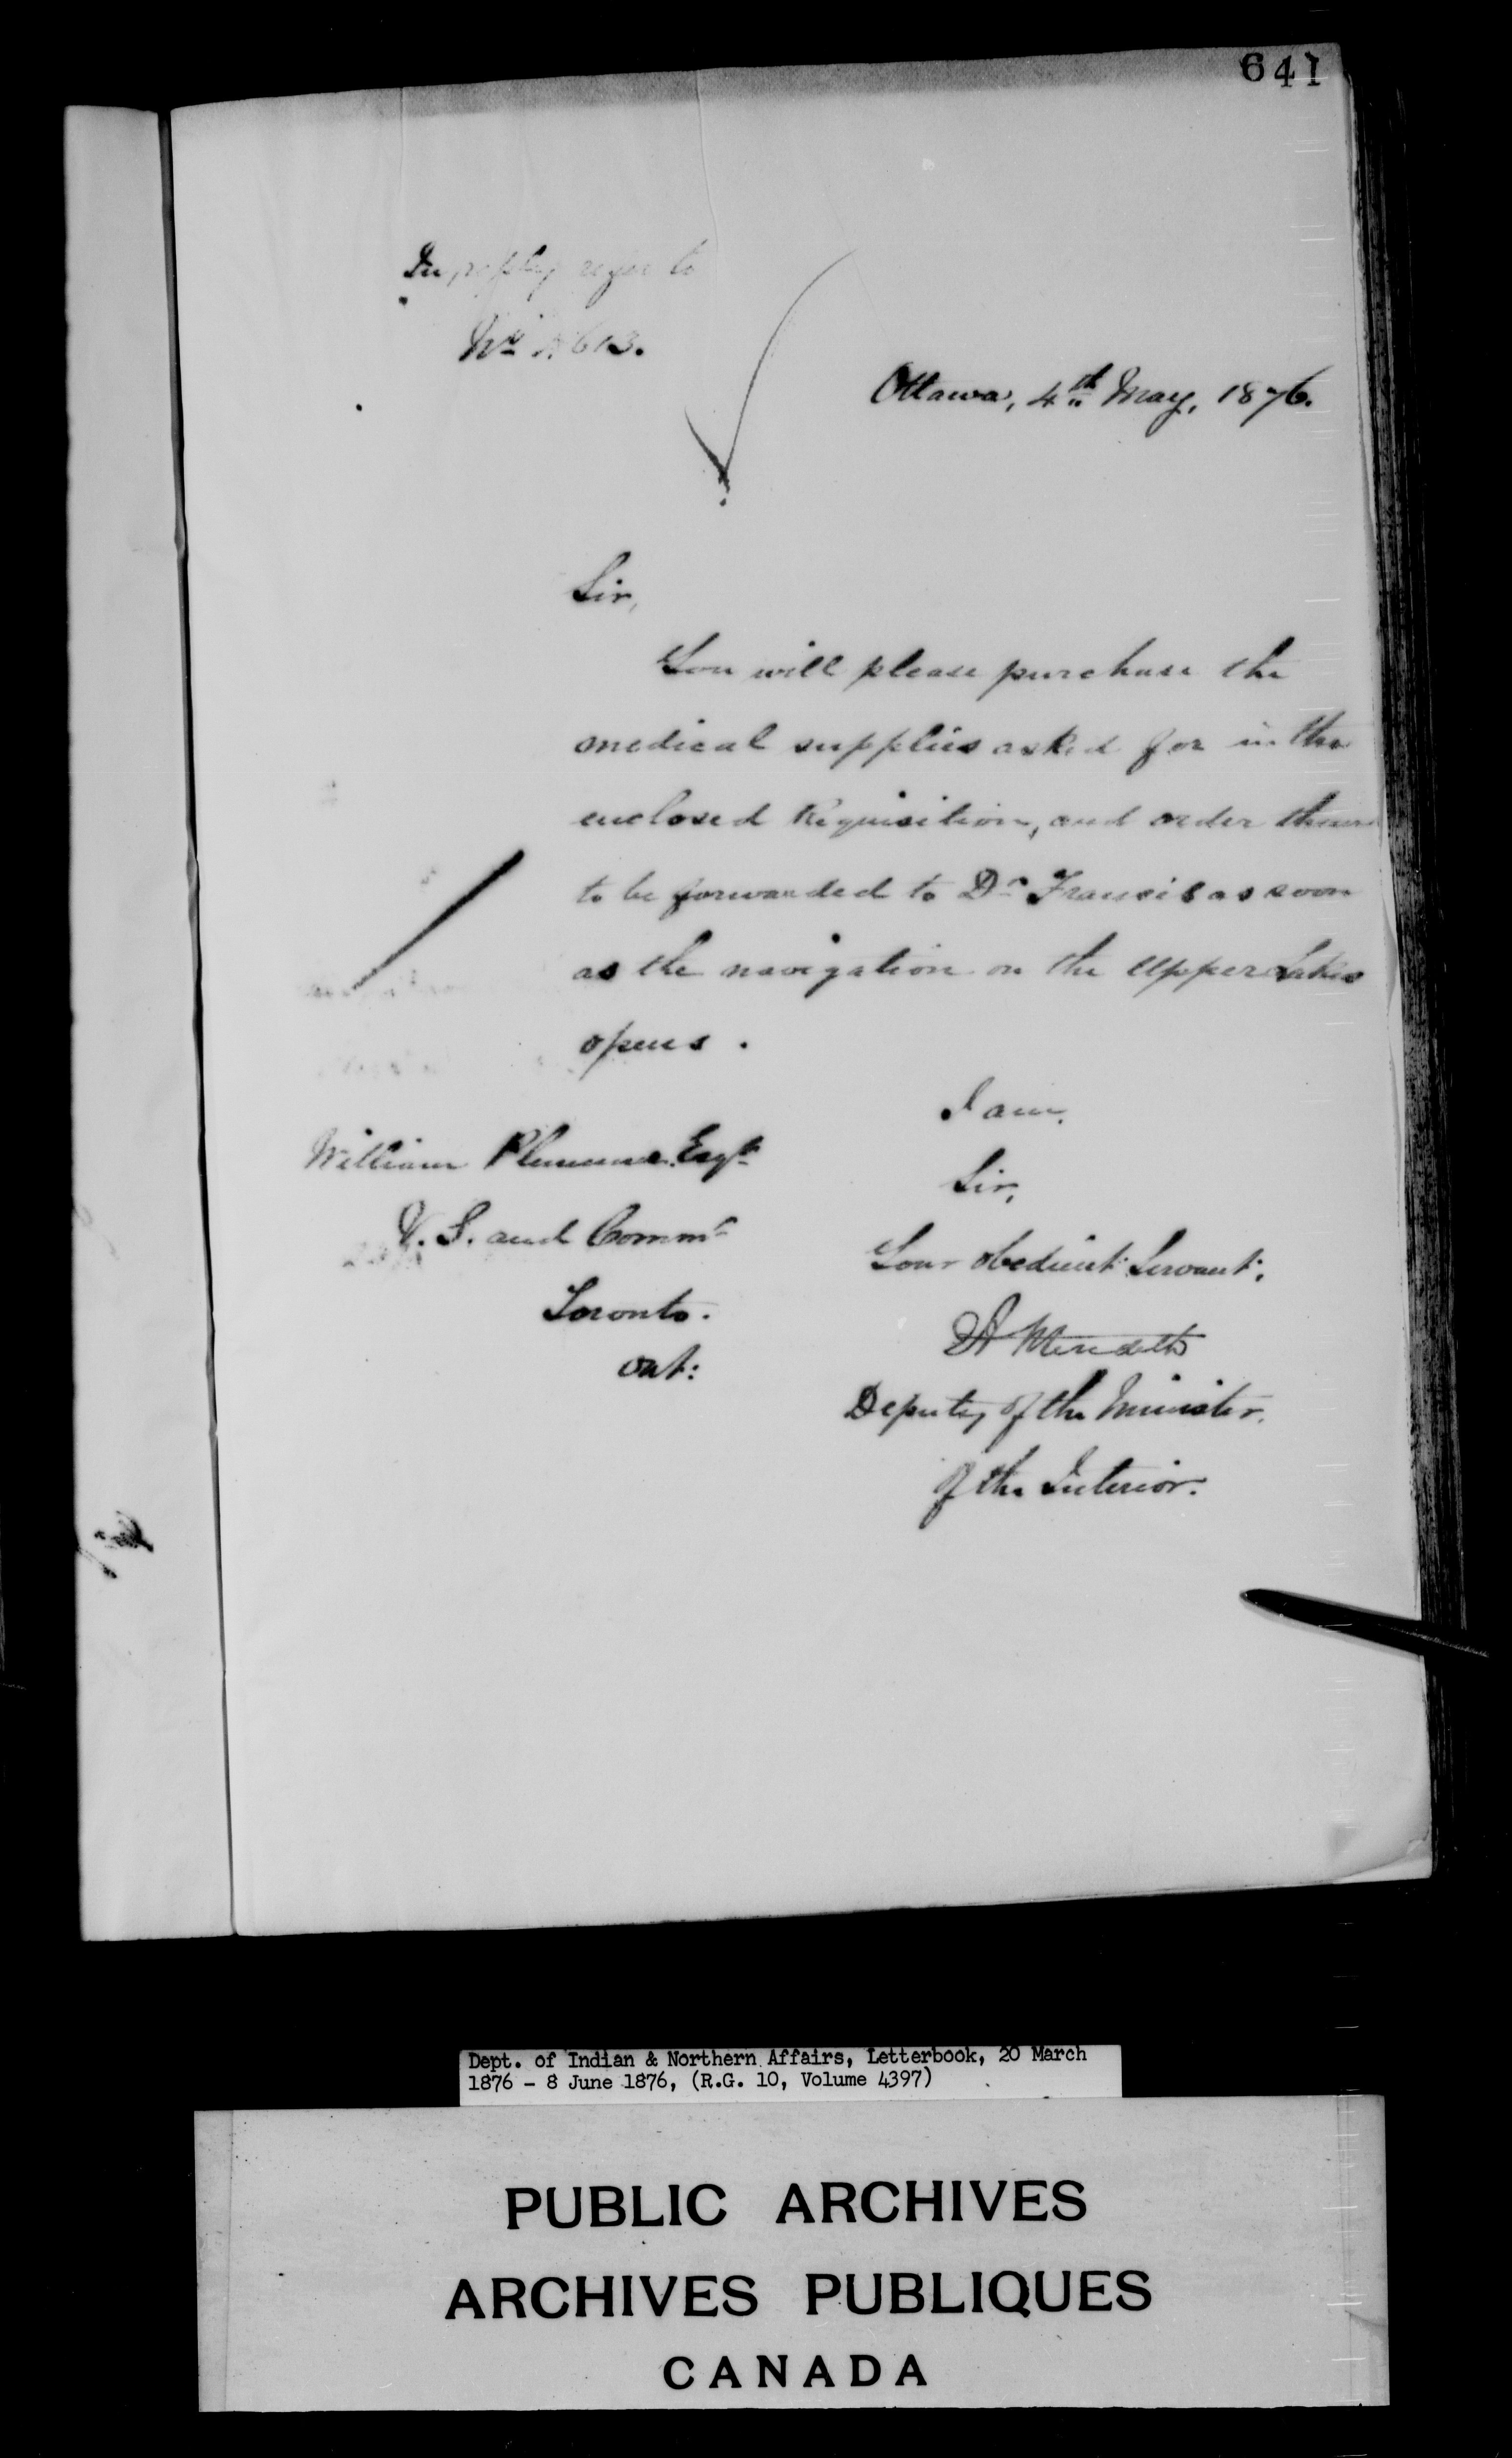 641
In reply refer to
No 613.
Ottawa, 4th May, 1876.
Sir,
You will please purchase the
medical supplies asked for in the
enclosed Requisition, and order them
to be forwarded to Dr Francis as soon
as the navigation on the Upper Lakes
opens.
I am,
Sir,
Your obedient Servant,
Meredith
Deputy of the Minister
of the Interior.
William Plummer Esqr
V. S. and Commr
Toronto.
Ont:
Dept. of Indian & Northern Affairs, Letterbook, 20 March
1876 - 8 June 1876, (R.G. 10, Volume 4397)
PUBLIC ARCHIVES
ARCHIVES PUBLIQUES
CANADA